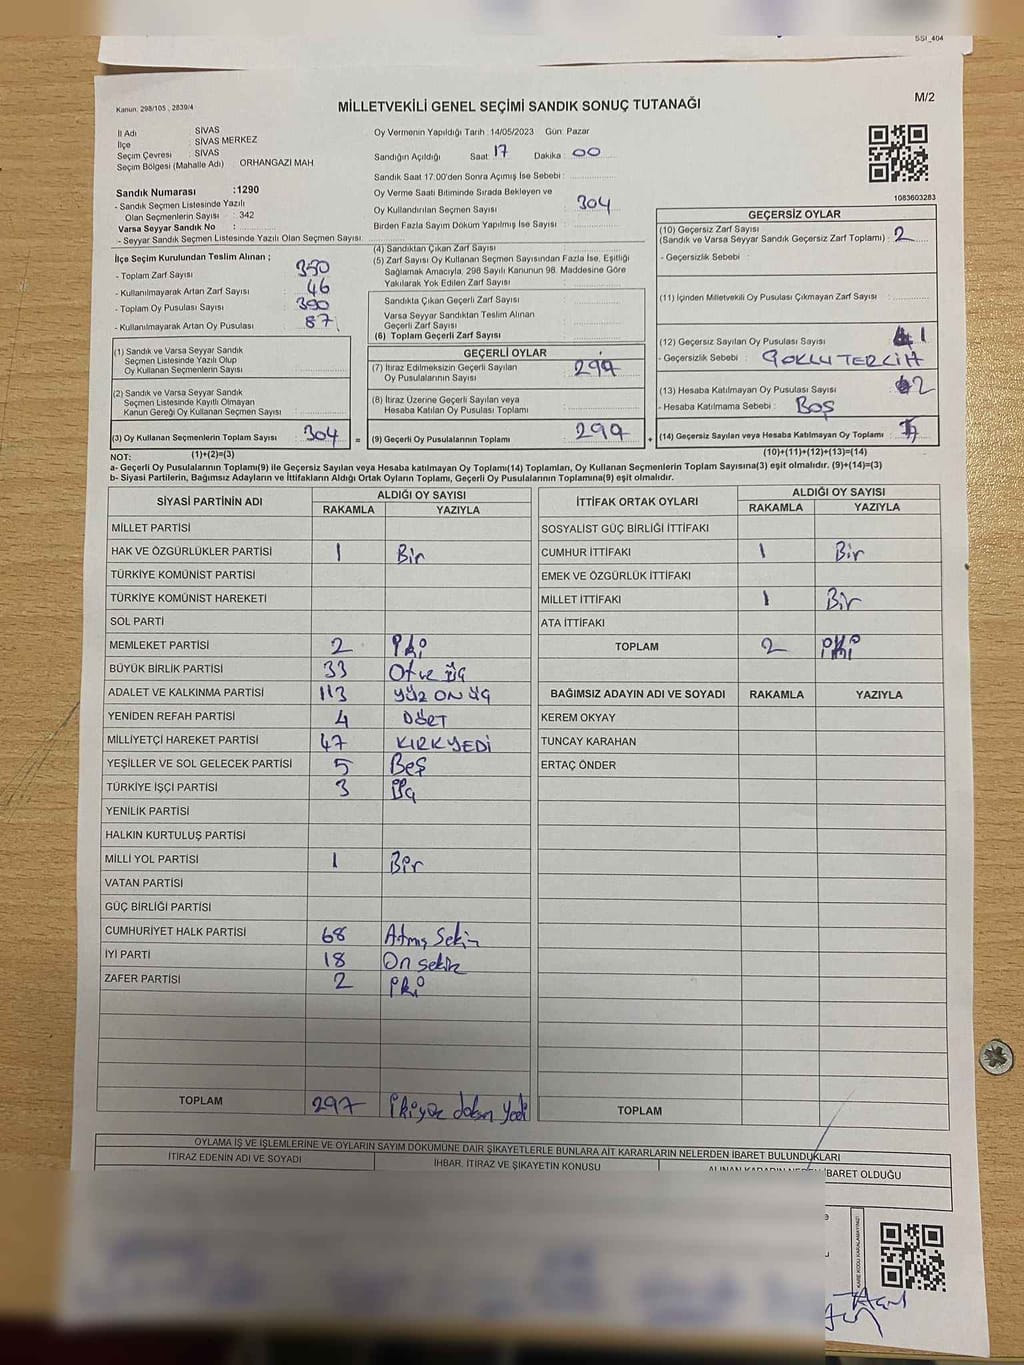 SSI_404
Kanun: 298/105 ; 2839/4
MİLLETVEKİLİ GENEL SEÇİMİ SANDIK SONUÇ TUTANAĞI
M/2
İl Adı : SİVAS
İlçe : SİVAS MERKEZ
Seçim Çevresi : SİVAS
Seçim Bölgesi (Mahalle Adı) : ORHANGAZI MAH.
Sandık Numarası :1290
- Sandık Seçmen Listesinde Yazılı
Olan Seçmenlerin Sayısı : 342
Varsa Seyyar Sandık No :
- Seyyar Sandık Seçmen Listesinde Yazılı Olan Seçmen Sayısı
Oy Vermenin Yapıldığı Tarih : 14/05/2023 Gün: Pazar
Sandığın Açıldığı Saat : 17 Dakika : 00
Sandık Saat 17:00'den Sonra Açımış İse Sebebi :
Oy Verme Saati Bitiminde Sırada Bekleyen ve
Oy Kullandırılan Seçmen Sayısı : 304
Birden Fazla Sayım Döküm Yapılmış İse Sayısı :
1083603283
İlçe Seçim Kurulundan Teslim Alınan ;
- Toplam Zarf Sayısı : 350
- Kullanılmayarak Artan Zarf Sayısı : 46
- Toplam Oy Pusulası Sayısı : 390
- Kullanılmayarak Artan Oy Pusulası : 87
(1) Sandık ve Varsa Seyyar Sandık
Seçmen Listesinde Yazılı Olup
Oy Kullanan Seçmenlerin Sayısı :
(2) Sandık ve Varsa Seyyar Sandık
Seçmen Listesinde Kayıtlı Olmayan
Kanun Gereği Oy Kullanan Seçmen Sayısı :
(3) Oy Kullanan Seçmenlerin Toplam Sayısı : 304
(1)+(2)=(3)
(4) Sandıktan Çıkan Zarf Sayısı
(5) Zarf Sayısı Oy Kullanan Seçmen Sayısından Fazla İse, Eşitliği
Sağlamak Amacıyla, 298 Sayılı Kanunun 98. Maddesine Göre
Yakılarak Yok Edilen Zarf Sayısı :
Sandıkta Çıkan Geçerli Zarf Sayısı :
Varsa Seyyar Sandıktan Teslim Alınan
Geçerli Zarf Sayısı :
(6) Toplam Geçerli Zarf Sayısı :
GEÇERLİ OYLAR
(7) İtiraz Edilmeksizin Geçerli Sayılan
Oy Pusulalarının Sayısı : 299
(8) İtiraz Üzerine Geçerli Sayılan veya
Hesaba Katılan Oy Pusulası Toplamı :
= (9) Geçerli Oy Pusulalarının Toplamı : 299 +
GEÇERSİZ OYLAR
(10) Geçersiz Zarf Sayısı
(Sandık ve Varsa Seyyar Sandık Geçersiz Zarf Toplamı) : 2
- Geçersizlik Sebebi :
(11) İçinden Milletvekili Oy Pusulası Çıkmayan Zarf Sayısı :
(12) Geçersiz Sayılan Oy Pusulası Sayısı : 1
- Geçersizlik Sebebi : ÇOKLU TERCİH
(13) Hesaba Katılmayan Oy Pusulası Sayısı : 2
- Hesaba Katılmama Sebebi : Boş
(14) Geçersiz Sayılan veya Hesaba Katılmayan Oy Toplamı :
(10)+(11)+(12)+(13)=(14)
NOT:
a- Geçerli Oy Pusulalarının Toplamı(9) ile Geçersiz Sayılan veya Hesaba katılmayan Oy Toplamı(14) Toplamları, Oy Kullanan Seçmenlerin Toplam Sayısına(3) eşit olmalıdır. (9)+(14)=(3)
b- Siyasi Partilerin, Bağımsız Adayların ve İttifakların Aldığı Ortak Oyların Toplamı, Geçerli Oy Pusulalarının Toplamına(9) eşit olmalıdır.
SİYASİ PARTİNİN ADI ALDIĞI OY SAYISI
RAKAMLA YAZIYLA
MİLLET PARTİSİ
HAK VE ÖZGÜRLÜKLER PARTİSİ 1 Bir
TÜRKİYE KOMÜNİST PARTİSİ
TÜRKİYE KOMÜNİST HAREKETİ
SOL PARTİ
MEMLEKET PARTİSİ 2 İki
BÜYÜK BİRLİK PARTİSİ 33 Otuz üç
ADALET VE KALKINMA PARTİSİ 113 YÜZ ON ÜÇ
YENİDEN REFAH PARTİSİ 4 DÖRT
MİLLİYETÇİ HAREKET PARTİSİ 47 KIRKYEDİ
YEŞİLLER VE SOL GELECEK PARTİSİ 5 Beş
TÜRKİYE İŞÇİ PARTİSİ 3 Üç
YENİLİK PARTİSİ
HALKIN KURTULUŞ PARTİSİ
MİLLİ YOL PARTİSİ 1 Bir
VATAN PARTİSİ
GÜÇ BİRLİĞİ PARTİSİ
CUMHURİYET HALK PARTİSİ 68 Atmış Sekiz
İYİ PARTİ 18 On sekiz
ZAFER PARTİSİ 2 İki
TOPLAM 297 İkiyüz doksan Yedi
İTTİFAK ORTAK OYLARI ALDIĞI OY SAYISI
RAKAMLA YAZIYLA
SOSYALİST GÜÇ BİRLİĞİ İTTİFAKI
CUMHUR İTTİFAKI 1 Bir
EMEK VE ÖZGÜRLÜK İTTİFAKI
MİLLET İTTİFAKI 1 Bir
ATA İTTİFAKI
TOPLAM 2 İki
BAĞIMSIZ ADAYIN ADI VE SOYADI RAKAMLA YAZIYLA
KEREM OKYAY
TUNCAY KARAHAN
ERTAÇ ÖNDER
TOPLAM
OYLAMA İŞ VE İŞLEMLERİNE VE OYLARIN SAYIM DÖKÜMÜNE DAİR ŞİKAYETLERLE BUNLARA AİT KARARLARIN NELERDEN İBARET BULUNDUKLARI
İTİRAZ EDENİN ADI VE SOYADI İHBAR, İTİRAZ VE ŞİKAYETİN KONUSU ALINAN KARARIN NEDEN İBARET OLDUĞU